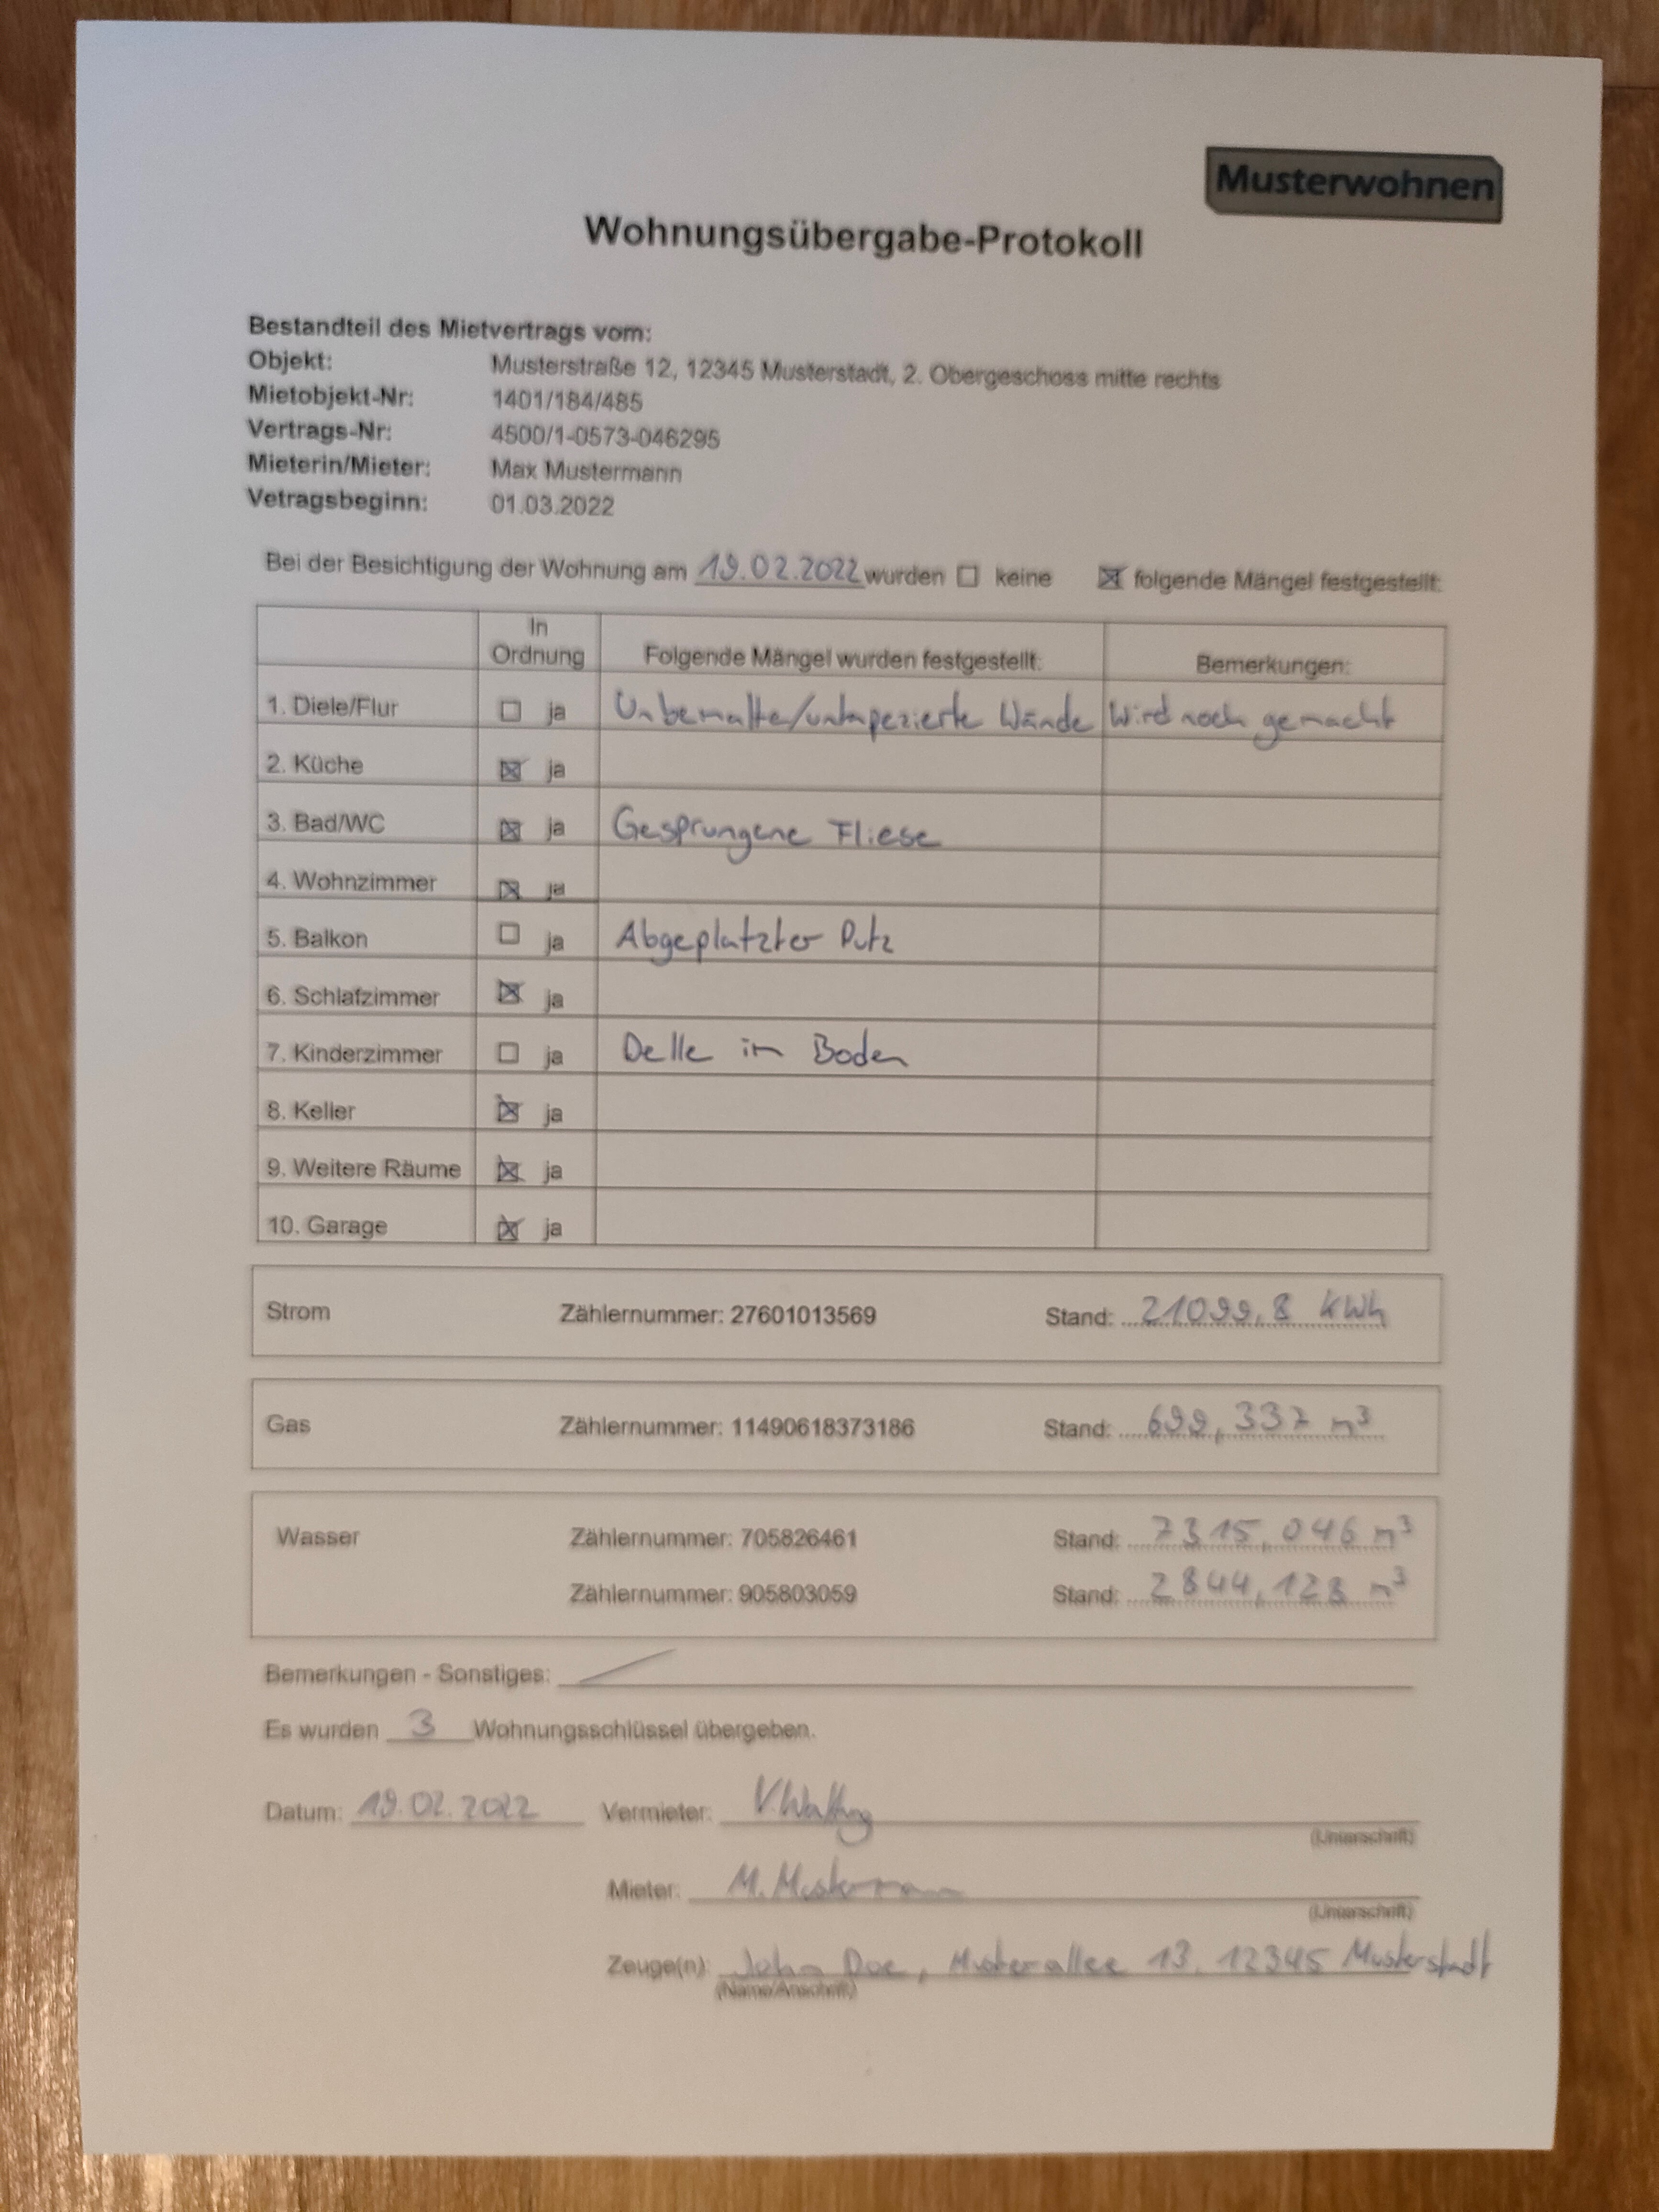 Musterwohnen
Wohnungsübergabe-Protokoll
Bestandteil des Mietvertrags vom:
Objekt: Musterstraße 12, 12345 Musterstadt, 2. Obergeschoss mitte rechts
Mietobjekt-Nr: 1401/184/485
Vertrags-Nr: 4500/1-0573-046295
Mieterin/Mieter: Max Mustermann
Vetragsbeginn: 01.03.2022
Bei der Besichtigung der Wohnung am 19.02.2022 wurden ☐ keine ☒ folgende Mängel festgestellt:
In Ordnung Folgende Mängel wurden festgestellt: Bemerkungen:
1. Diele/Flur ☐ ja Unbemalte/untapezierte Wände Wird noch gemacht
2. Küche ☒ ja
3. Bad/WC ☒ ja Gesprungene Fliese
4. Wohnzimmer ☒ ja
5. Balkon ☐ ja Abgeplatzter Putz
6. Schlafzimmer ☒ ja
7. Kinderzimmer ☐ ja Delle im Boden
8. Keller ☒ ja
9. Weitere Räume ☒ ja
10. Garage ☒ ja
Strom Zählernummer: 27601013569 Stand: 21099,8 kWh
Gas Zählernummer: 11490618373186 Stand: 699,337 m³
Wasser Zählernummer: 705826461 Stand: 7315,046 m³
Zählernummer: 905803059 Stand: 2844,128 m³
Bemerkungen - Sonstiges:
Es wurden 3 Wohnungsschlüssel übergeben.
Datum: 19.02.2022 Vermieter:
(Unterschrift)
Mieter: M. Mustermann
(Unterschrift)
Zeuge(n): John Doe, Musterallee 13, 12345 Musterstadt
(Name/Anschrift)